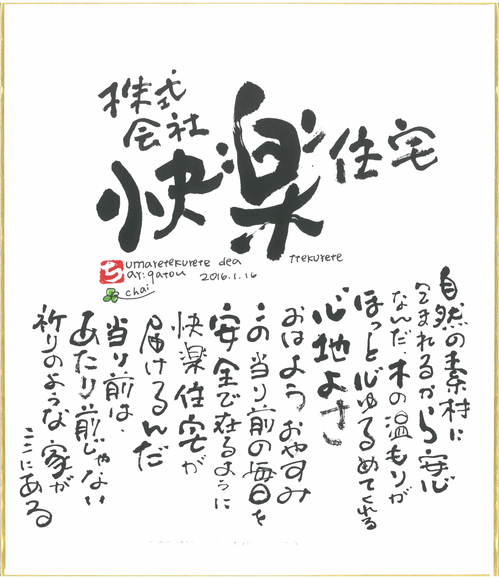 株式
会社
快楽住宅
umaretekurete dea
ttekurete
arigatou 2016.1.16
chai
自然の素材に
包まれるから安心
なんだ木の温もりが
ほっと心ゆるめてくれる
心地よさ
おはよう おやすみ
この当り前の毎日を
安全で在るように
快楽住宅が
届けるんだ
当り前は、
あたり前じゃない
祈りのような家が
ここにある